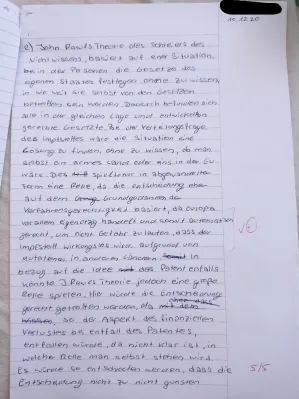 10.12.20
c) John Rawls Theorie des Schleiers des
Nichtwissens, basiert auf einer Situation,
bei der Personen die Gesetze des
eigenen Staates festlegen, ohne zu wissen,
in wie weit sie selbst von den Gesetzen
betroffen sein werden. Dadurch befinden sich
alle in der gleichen Lage und entwickeln
gerechte Gesetze. Bei der Verteilungsfrage
des Impfstoffes wäre die Situation eine
Lösung zu finden, ohne zu wissen, ob man
selbst ein armes Land oder eins in der EU
wäre. Dies spielt hier in abgewandelter
Form eine Rolle, da die Entscheidung eher
auf dem Grundgedanken der
Verfahrensgerechtigkeit basiert, da Europa
vor allem handelt und somit
, um nicht Gefahr zu laufen, dass der
Impfstoff wirkungslos wird, aufgrund von
Mutationen in anderen Ländern. In
bezug auf die Idee des Patentenfalls
könnte J. Rawls Theorie jedoch eine große
Rolle spielen. Hier würde die Entscheidung
gerecht getroffen werden,
so der Aspekt des finanziellen
Verlustes bei entfall des Patentes,
entfallen würde, da nicht klar ist, in
welcher Rolle man selbst stehen wird.
Es würde so entschieden werden, dass die
Entscheidung nicht zu nicht gunsten
5/5